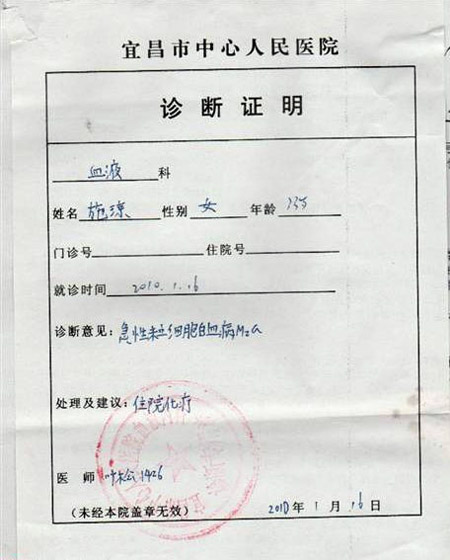 宜昌市中心人民医院
诊断证明
血液 科
姓名 施琼 性别 女 年龄 23岁
门诊号 住院号
就诊时间 2010.1.16
诊断意见：急性粒细胞白血病M2a
处理及建议：住院化疗
医师 1426
（未经本院盖章无效） 2010年1月16日